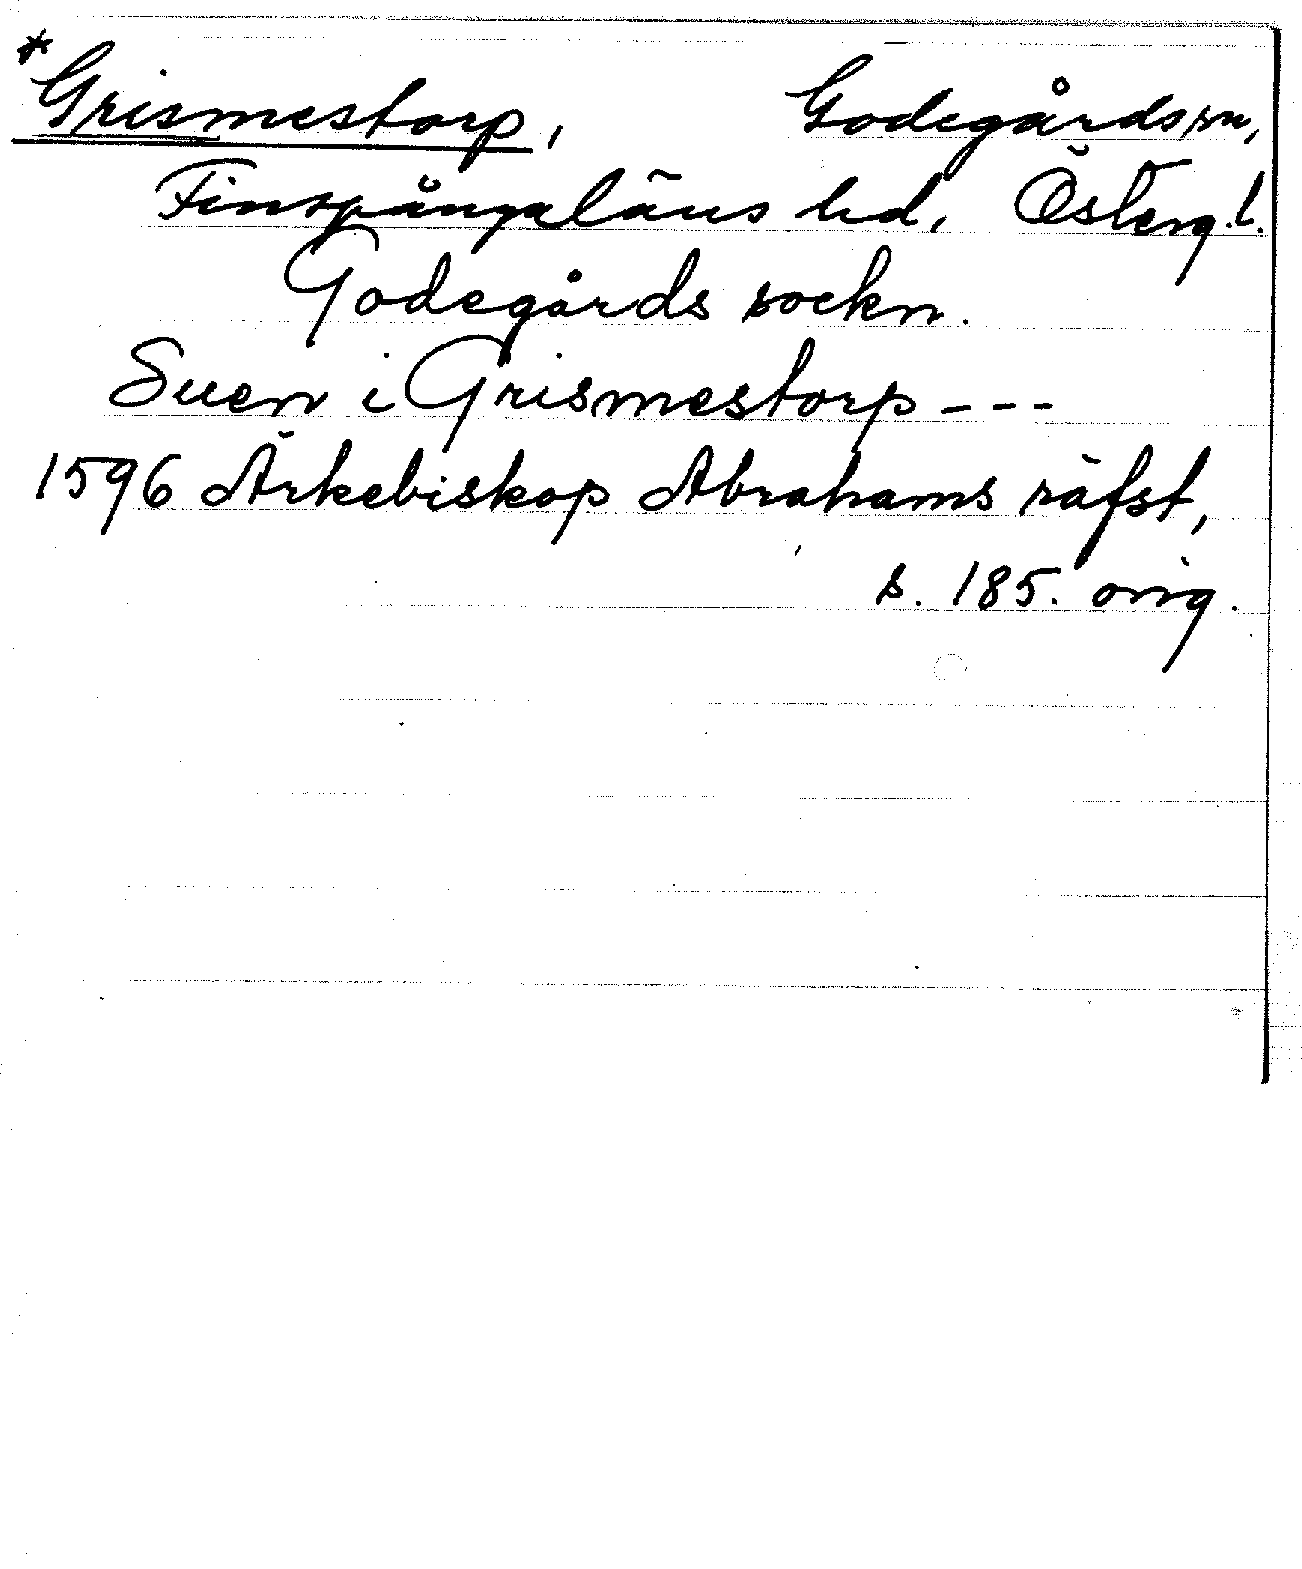 *Grismestorp, Godegårds sn,
Finspångaläns hd, Österg. l.
Godegårds sockn.
Suen i Grismestorp ---
1596 Ärkebiskop Abrahams räfst,
s. 185. orig.